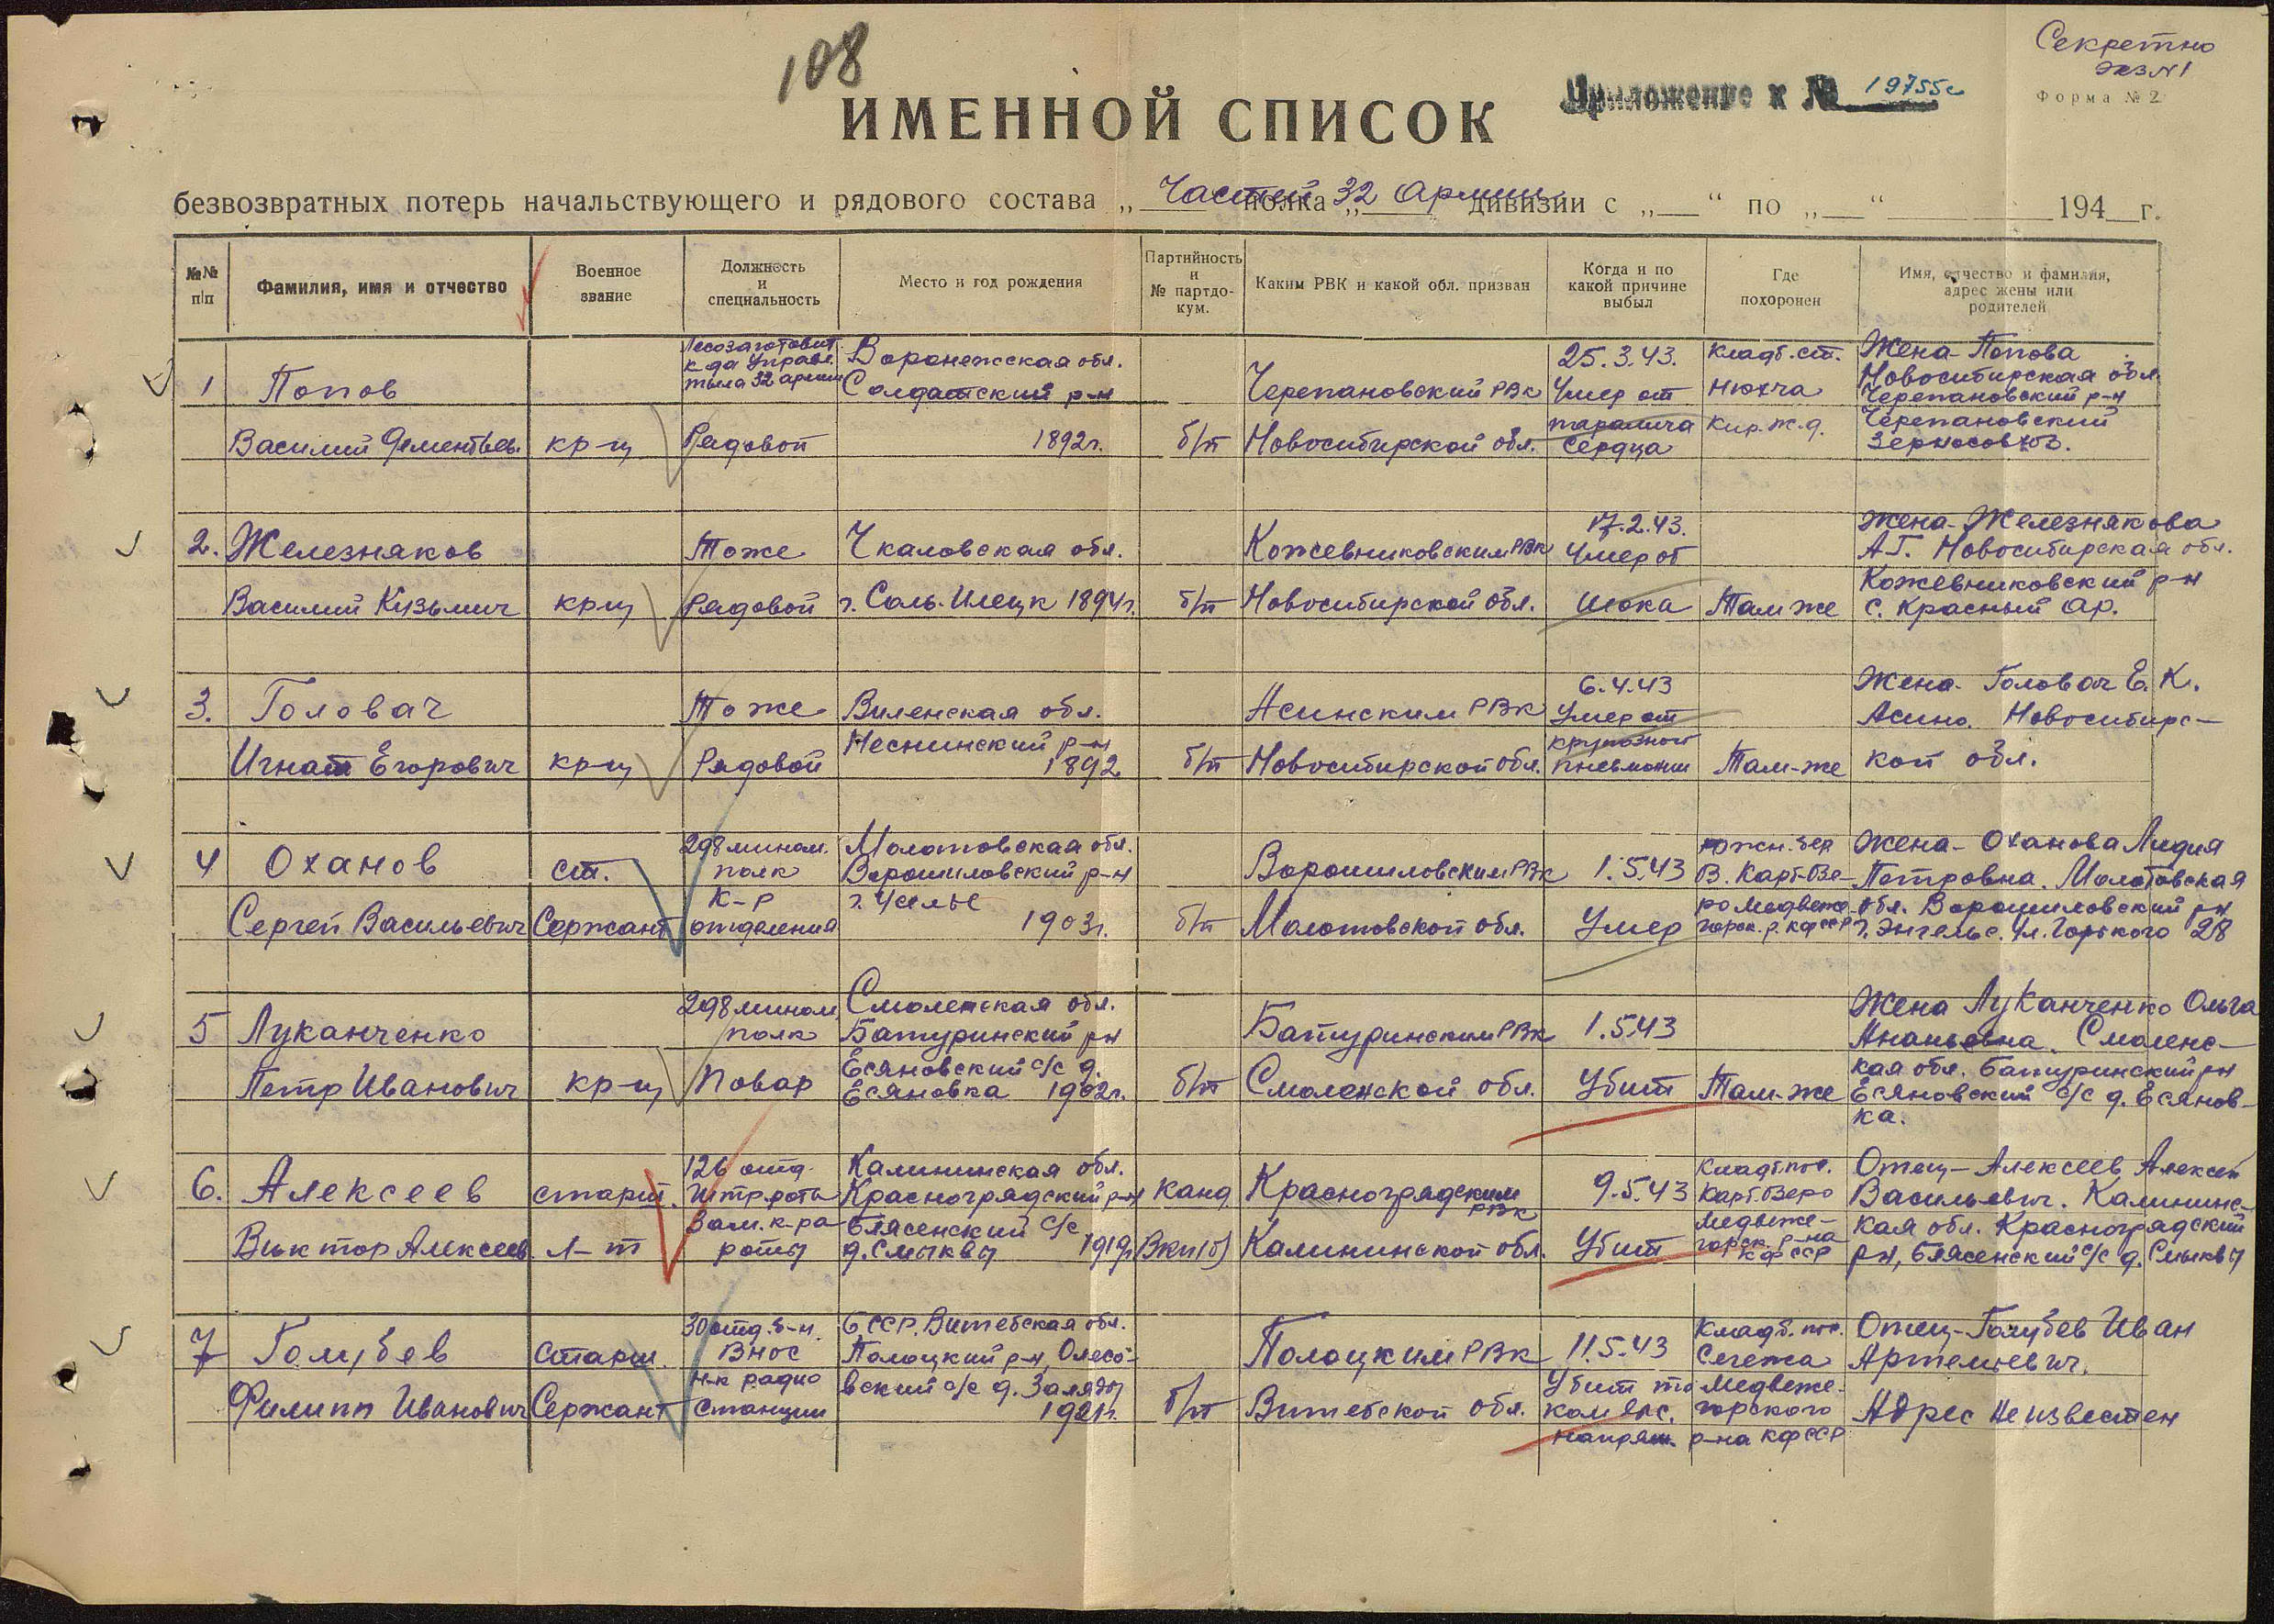 108
Секретно
экз №1
Форма № 2
Приложение к № 19755с
ИМЕННОЙ СПИСОК
безвозвратных потерь начальствующего и рядового состава „ Частей полка „ 32 Армии дивизии с „__“ по „__“ 194__г.
№№ п/п
Фамилия, имя и отчество
Военное звание
Должность и специальность
Место и год рождения
Партийность и № партдокум.
Каким РВК и какой обл. призван
Когда и по какой причине выбыл
Где похоронен
Имя, отчество и фамилия, адрес жены или родителей
1 Попов
Василий Дементьев.
кр-ц
Лесозаготовит.
к-да Управл.
тыла 32 армии
Рядовой
Воронежская обл.
Солдатский р-н
1892г.
б/п
Черепановский РВК
Новосибирской обл.
25.3.43.
Умер от
паралича
сердца
Кладб. ст.
Нюхча
Кир. ж.д.
Жена-Попова
Новосибирская обл
Черепановский р-н
Черепановский
Зерносовхоз.
2. Железняков
Василий Кузьмич
кр-ц
Тоже
Рядовой
Чкаловская обл.
г. Соль-Илецк 1894г.
б/п
Кожевниковским РВК
Новосибирской обл.
17.2.43.
Умер от
шока
Там же
Жена-Железнякова
А.Г. Новосибирская обл.
Кожевниковский р-н
с. Красный Яр.
3. Головач
Игнат Егорович
кр-ц
Тоже
Рядовой
Виленская обл.
р-н
1892
б/п
Асинским РВК
Новосибирской обл.
6.4.43
Умер от
крупозной
пневмонии
Там-же
Жена-Головач Е.К.
Асино. Новосибирс-
кой обл.
4 Оханов
Сергей Васильевич
ст.
Сержант
298 мином.
полк
К-р
отделения
Молотовская обл.
Ворошиловский р-н
г. Усолье
1903г.
б/п
Ворошиловским РВК
Молотовской обл.
1.5.43
Умер
южн. бер
В. Карт. Озе-
ро Медвеже-
горск. р. КФССР
Жена-Оханова Лидия
Петровна. Молотовская
обл. Ворошиловский рн
г. Энгельс. ул. Горького 28
5 Луканченко
Петр Иванович
кр-ц
298 мином.
полк
Повар
Смоленская обл.
Батуринский рн
Есяновский с/с д.
Есяновка 1902г.
б/п
Батуринским РВК
Смоленской обл.
1.5.43
Убит
Там-же
Жена Луканченко Ольга
Ананьевна. Смоленс-
кая обл. Батуринский рн
Есяновский с/с д. Есянов-
ка.
6. Алексеев
Виктор Алексеев
старш.
л-т
126 отд.
штр.роты
Зам. к-ра
роты
Калининская обл.
Красногрядский р-н
Блясенский с/с
д. Смыквы 1919г
канд
ВКП(б)
Красногрядским
РВК
Калининской обл.
9.5.43
Убит
Кладб. пос.
Карт. Озеро
Медвеже-
горск. р-на
КФССР
Отец-Алексеев Алексей
Васильевич. Калининс-
кая обл. Красногрядский
рн, Блясенский с/с д. Смыквы
7 Голубев
Филипп Иванович
Старш.
Сержант
30 отд. б-н.
ВНОС
н-к радио
станции
БССР. Витебская обл.
Полоцкий р-н
с/с д. Заляды
1921г.
б/п
Полоцким РВК
Витебской обл.
11.5.43
Убит то
ком выс.
напряж.
Кладб. пос.
Сегежа
Медвеже-
горского
р-на КФССР
Отец-Голубев Иван
Артемьевич.
Адрес неизвестен